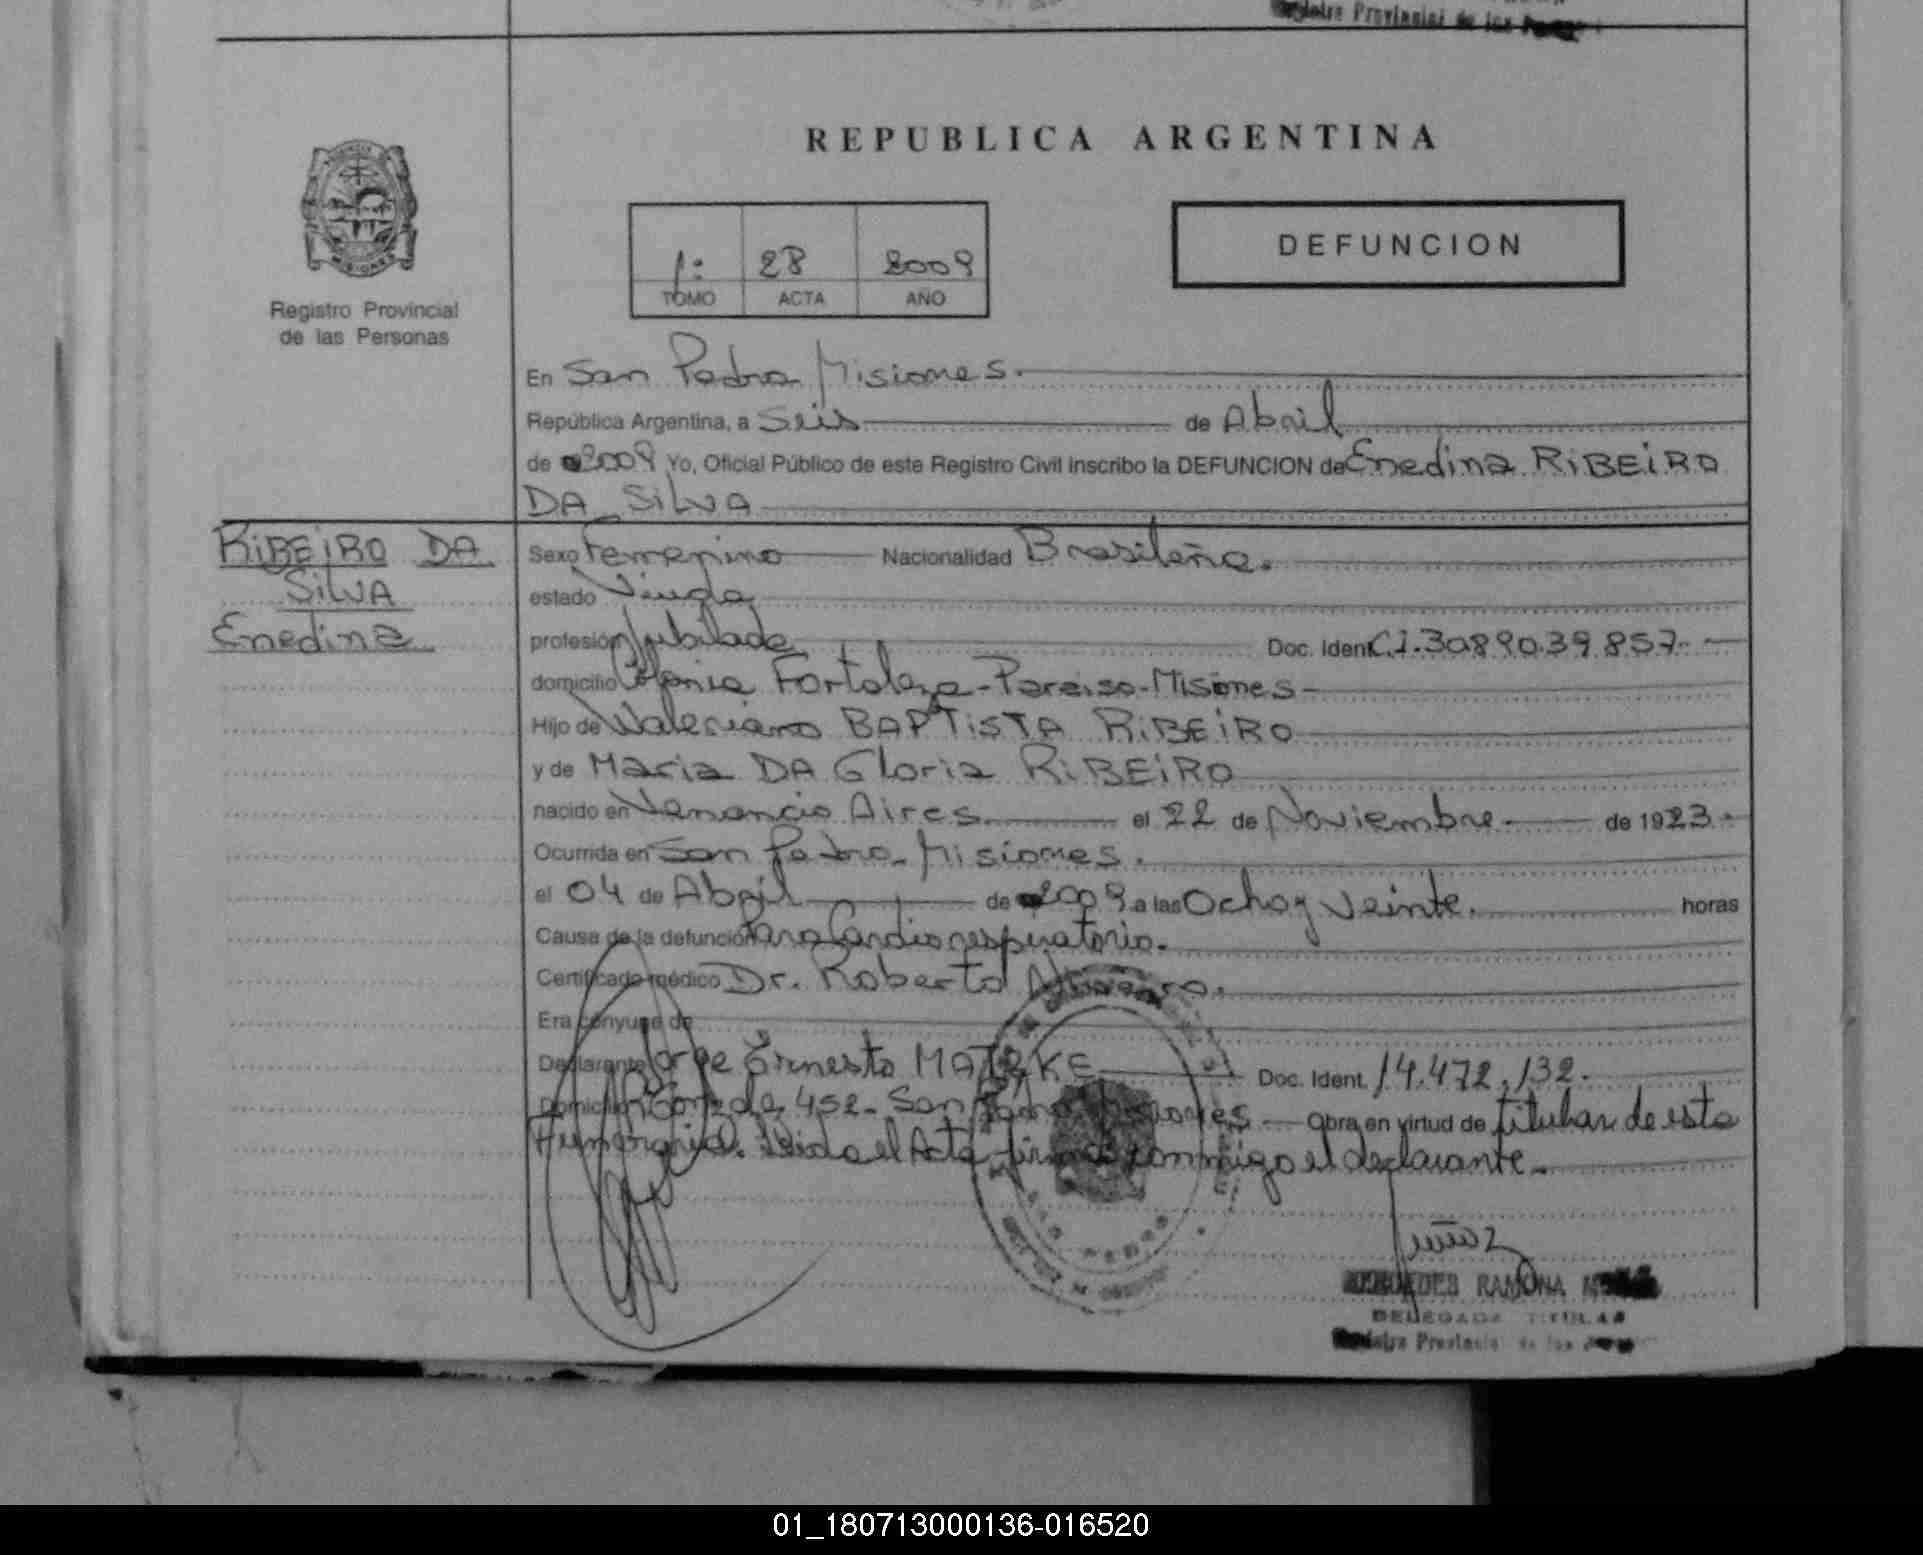 Registro Provincial de las
REPUBLICA ARGENTINA
1: 28 2009
TOMO ACTA AÑO
DEFUNCION
MISIONES
Registro Provincial
de las Personas
En San Pedro Misiones.
República Argentina, a Seis de Abril
de 2009 Yo, Oficial Público de este Registro Civil inscribo la DEFUNCION de Enedina RiBEiRO
DA SiLVA
RiBEiRO DA
SiLVA
Enedina
Sexo Femenino Nacionalidad Brasileña.
estado Viuda
profesión Jubilada Doc. Ident. C.I. 3089039857.
domicilio Colonia Fortaleza - Paraiso - Misiones
Hijo de Valeriano BAPTiSTA RiBEiRO
y de Maria DA Gloria RiBEiRO
nacido en Venancio Aires el 22 de Noviembre de 1923.
Ocurrida en San Pedro. Misiones.
el 04 de Abril de 2009 a las Ocho y veinte. horas
Causa de la defunción Paro Cardiorespiratorio.
Certificado médico Dr. Roberto
Era cónyuge de
Declarante Jorge Ernesto MATZKE Doc. Ident. 14.472.132.
Domicilio 452 - San Pedro Misiones Obra en virtud de titular de esta
Leida el Acta firma conmigo el declarante.
MERCEDES RAMONA
DELEGADA TITULAR
Registro Provincial de las
01_180713000136-016520